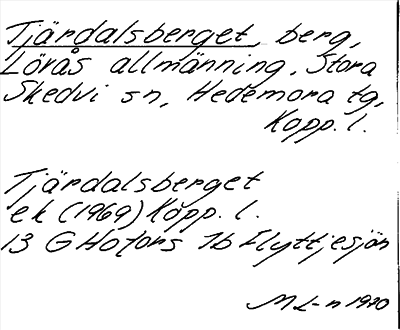 Tjärdalsberget, berg,
Lörås allmänning, Stora
Skedvi sn, Hedemora tg,
Kopp. l.
Tjärdalsberget
ek (1969) Kopp. l.
13 G Hofors 1b Flyttjesjön
M L-n 1970